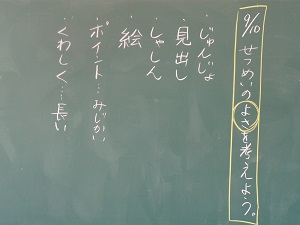 9/10 せつめいのよさを考えよう。
・じゅんじょ
・見出し
・しゃしん
・絵
・ポイント…みじかい
・くわしく…長い